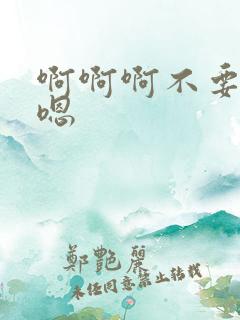 啊啊啊不要
嗯
鄭艷麗
未经同意禁止转载